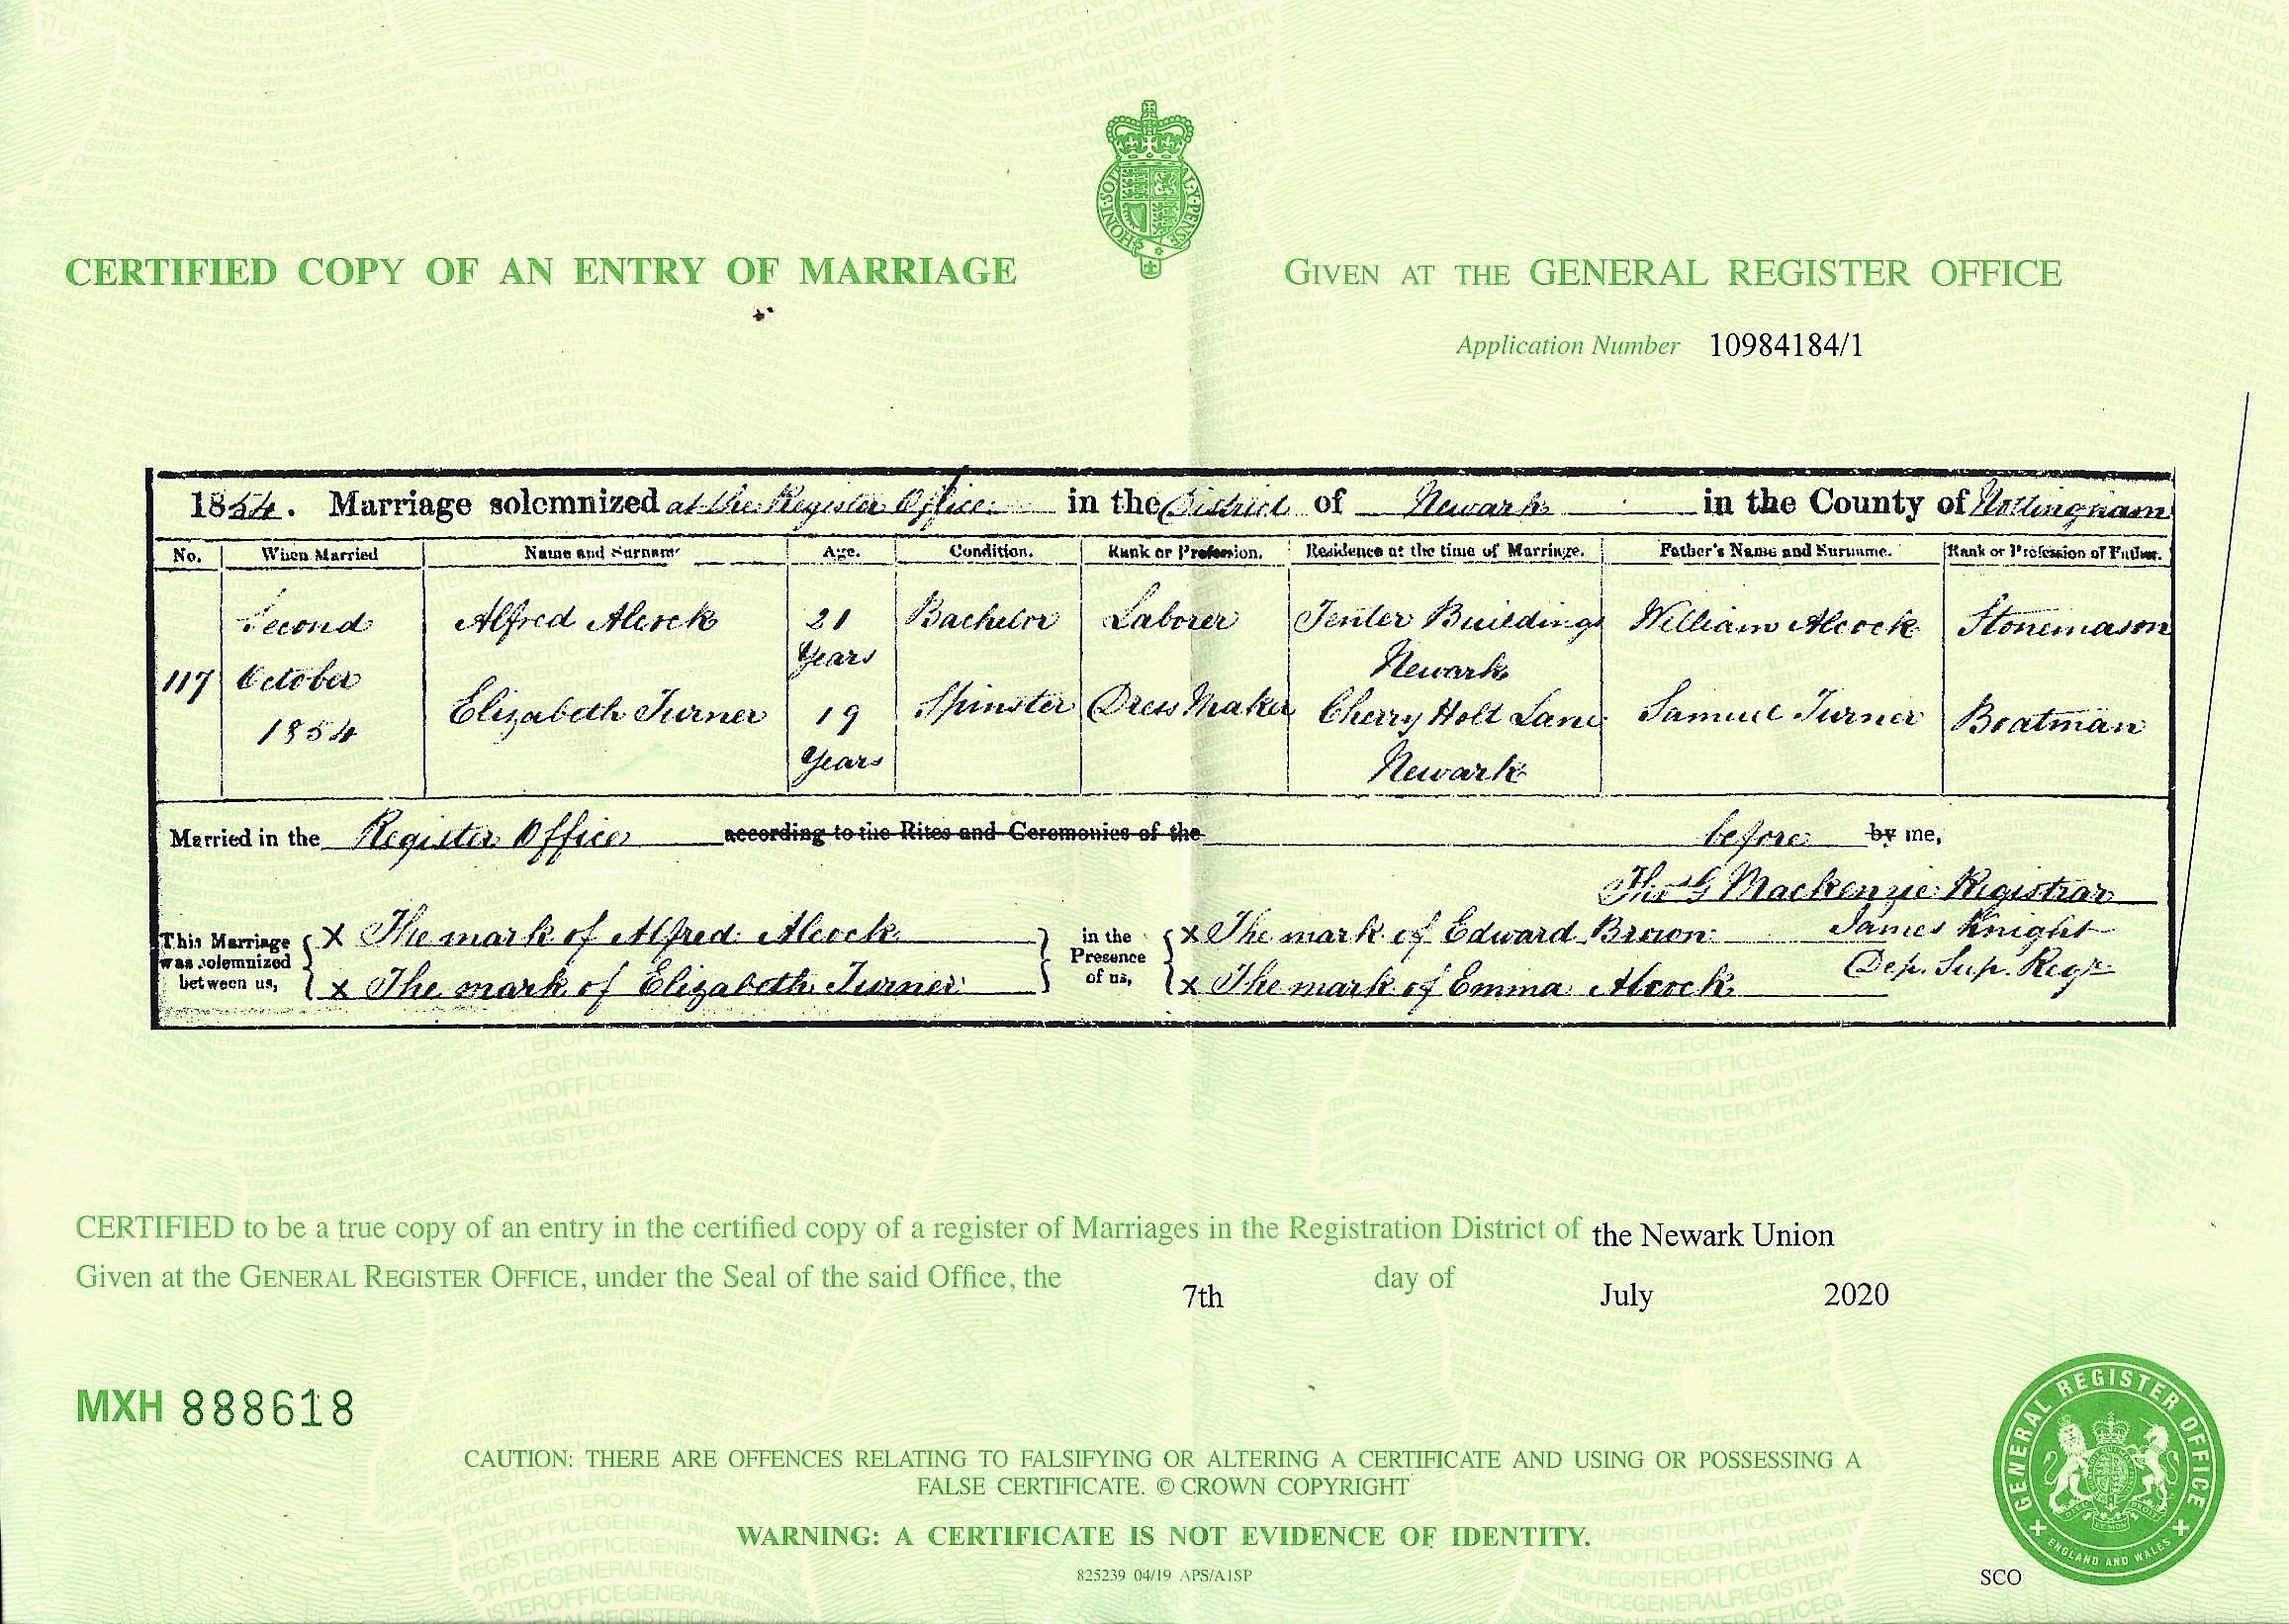 CERTIFIED COPY OF AN ENTRY OF MARRIAGE
GIVEN AT THE GENERAL REGISTER OFFICE
Application Number 10984184/1
1854. Marriage solemnized at the Register Office in the District of Newark in the County of Nottingham
No. When Married Name and Surname Age. Condition. Rank or Profession. Residence at the time of Marriage. Father's Name and Surname. Rank or Profession of Father.
Second Alfred Alcock 21 Bachelor Laborer Tenter Buildings William Alcock Stonemason
Years Newark
117 October
Elizabeth Turner 19 Spinster Dress Maker Cherry Holt Lane Samuel Turner Boatman
1854
Years Newark
Married in the Register Office according to the Rites and Ceremonies of the before by me,
Thos G Mackenzie Registrar
This Marriage was solemnized between us, X The mark of Alfred Alcock in the Presence of us, X The mark of Edward Brown James Knight
X The mark of Elizabeth Turner X The mark of Emma Alcock Dep. Sup. Regr
CERTIFIED to be a true copy of an entry in the certified copy of a register of Marriages in the Registration District of the Newark Union
Given at the GENERAL REGISTER OFFICE, under the Seal of the said Office, the 7th day of July 2020
MXH 888618
CAUTION: THERE ARE OFFENCES RELATING TO FALSIFYING OR ALTERING A CERTIFICATE AND USING OR POSSESSING A
FALSE CERTIFICATE. © CROWN COPYRIGHT
WARNING: A CERTIFICATE IS NOT EVIDENCE OF IDENTITY.
825239 04/19 APS/A1SP
SCO
GENERAL REGISTER OFFICE
ENGLAND AND WALES